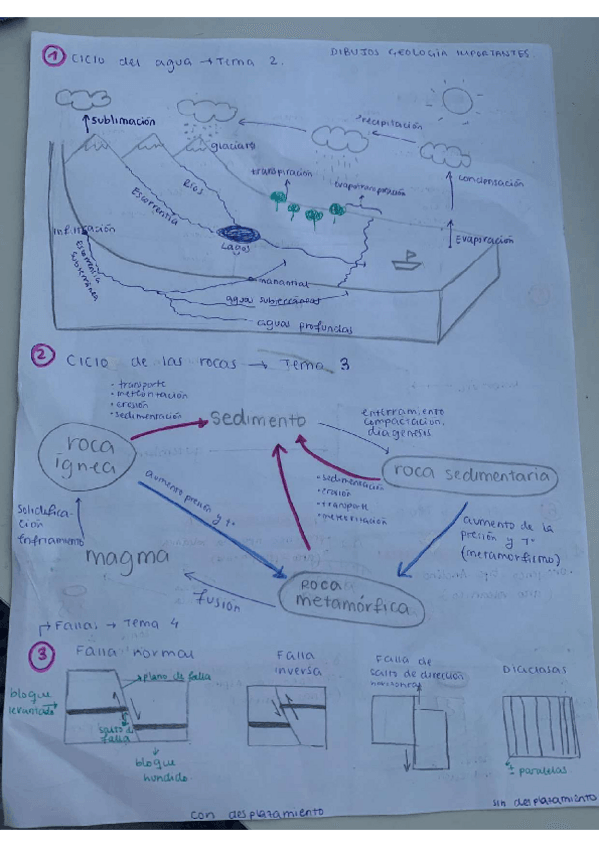 1 Ciclo del agua → Tema 2.
DIBUJOS GEOLOGÍA IMPORTANTES
sublimación
glaciars
precipitación
condensación
transpiración
evapotranspiración
Ríos
Escorrentía
infiltración
Lagos
Evapiración
Escorrentía
subterránea
manantial
aguas subterráneas
aguas profundas
2 Ciclo de las rocas → Tema 3
· transporte
· meteorización
· erosión
· sedimentación
sedimento
enterramiento
compactación,
diagénesis
roca
ígnea
roca sedimentaria
· sedimentación
· erosión
· transporte
· meteorización
aumento presión y Tº
aumento de la
presión y Tº
(metamorfismo)
solidifica-
ación
enfriamiento
magma
fusión
roca
metamórfica
Fallas → Tema 4
3 Falla normal
plano de falla
bloque
levantado
salto de
falla
bloque
hundido
Falla
inversa
Falla de
salto de dirección
Diaclasas
± paralelas
con desplazamiento
sin desplazamiento